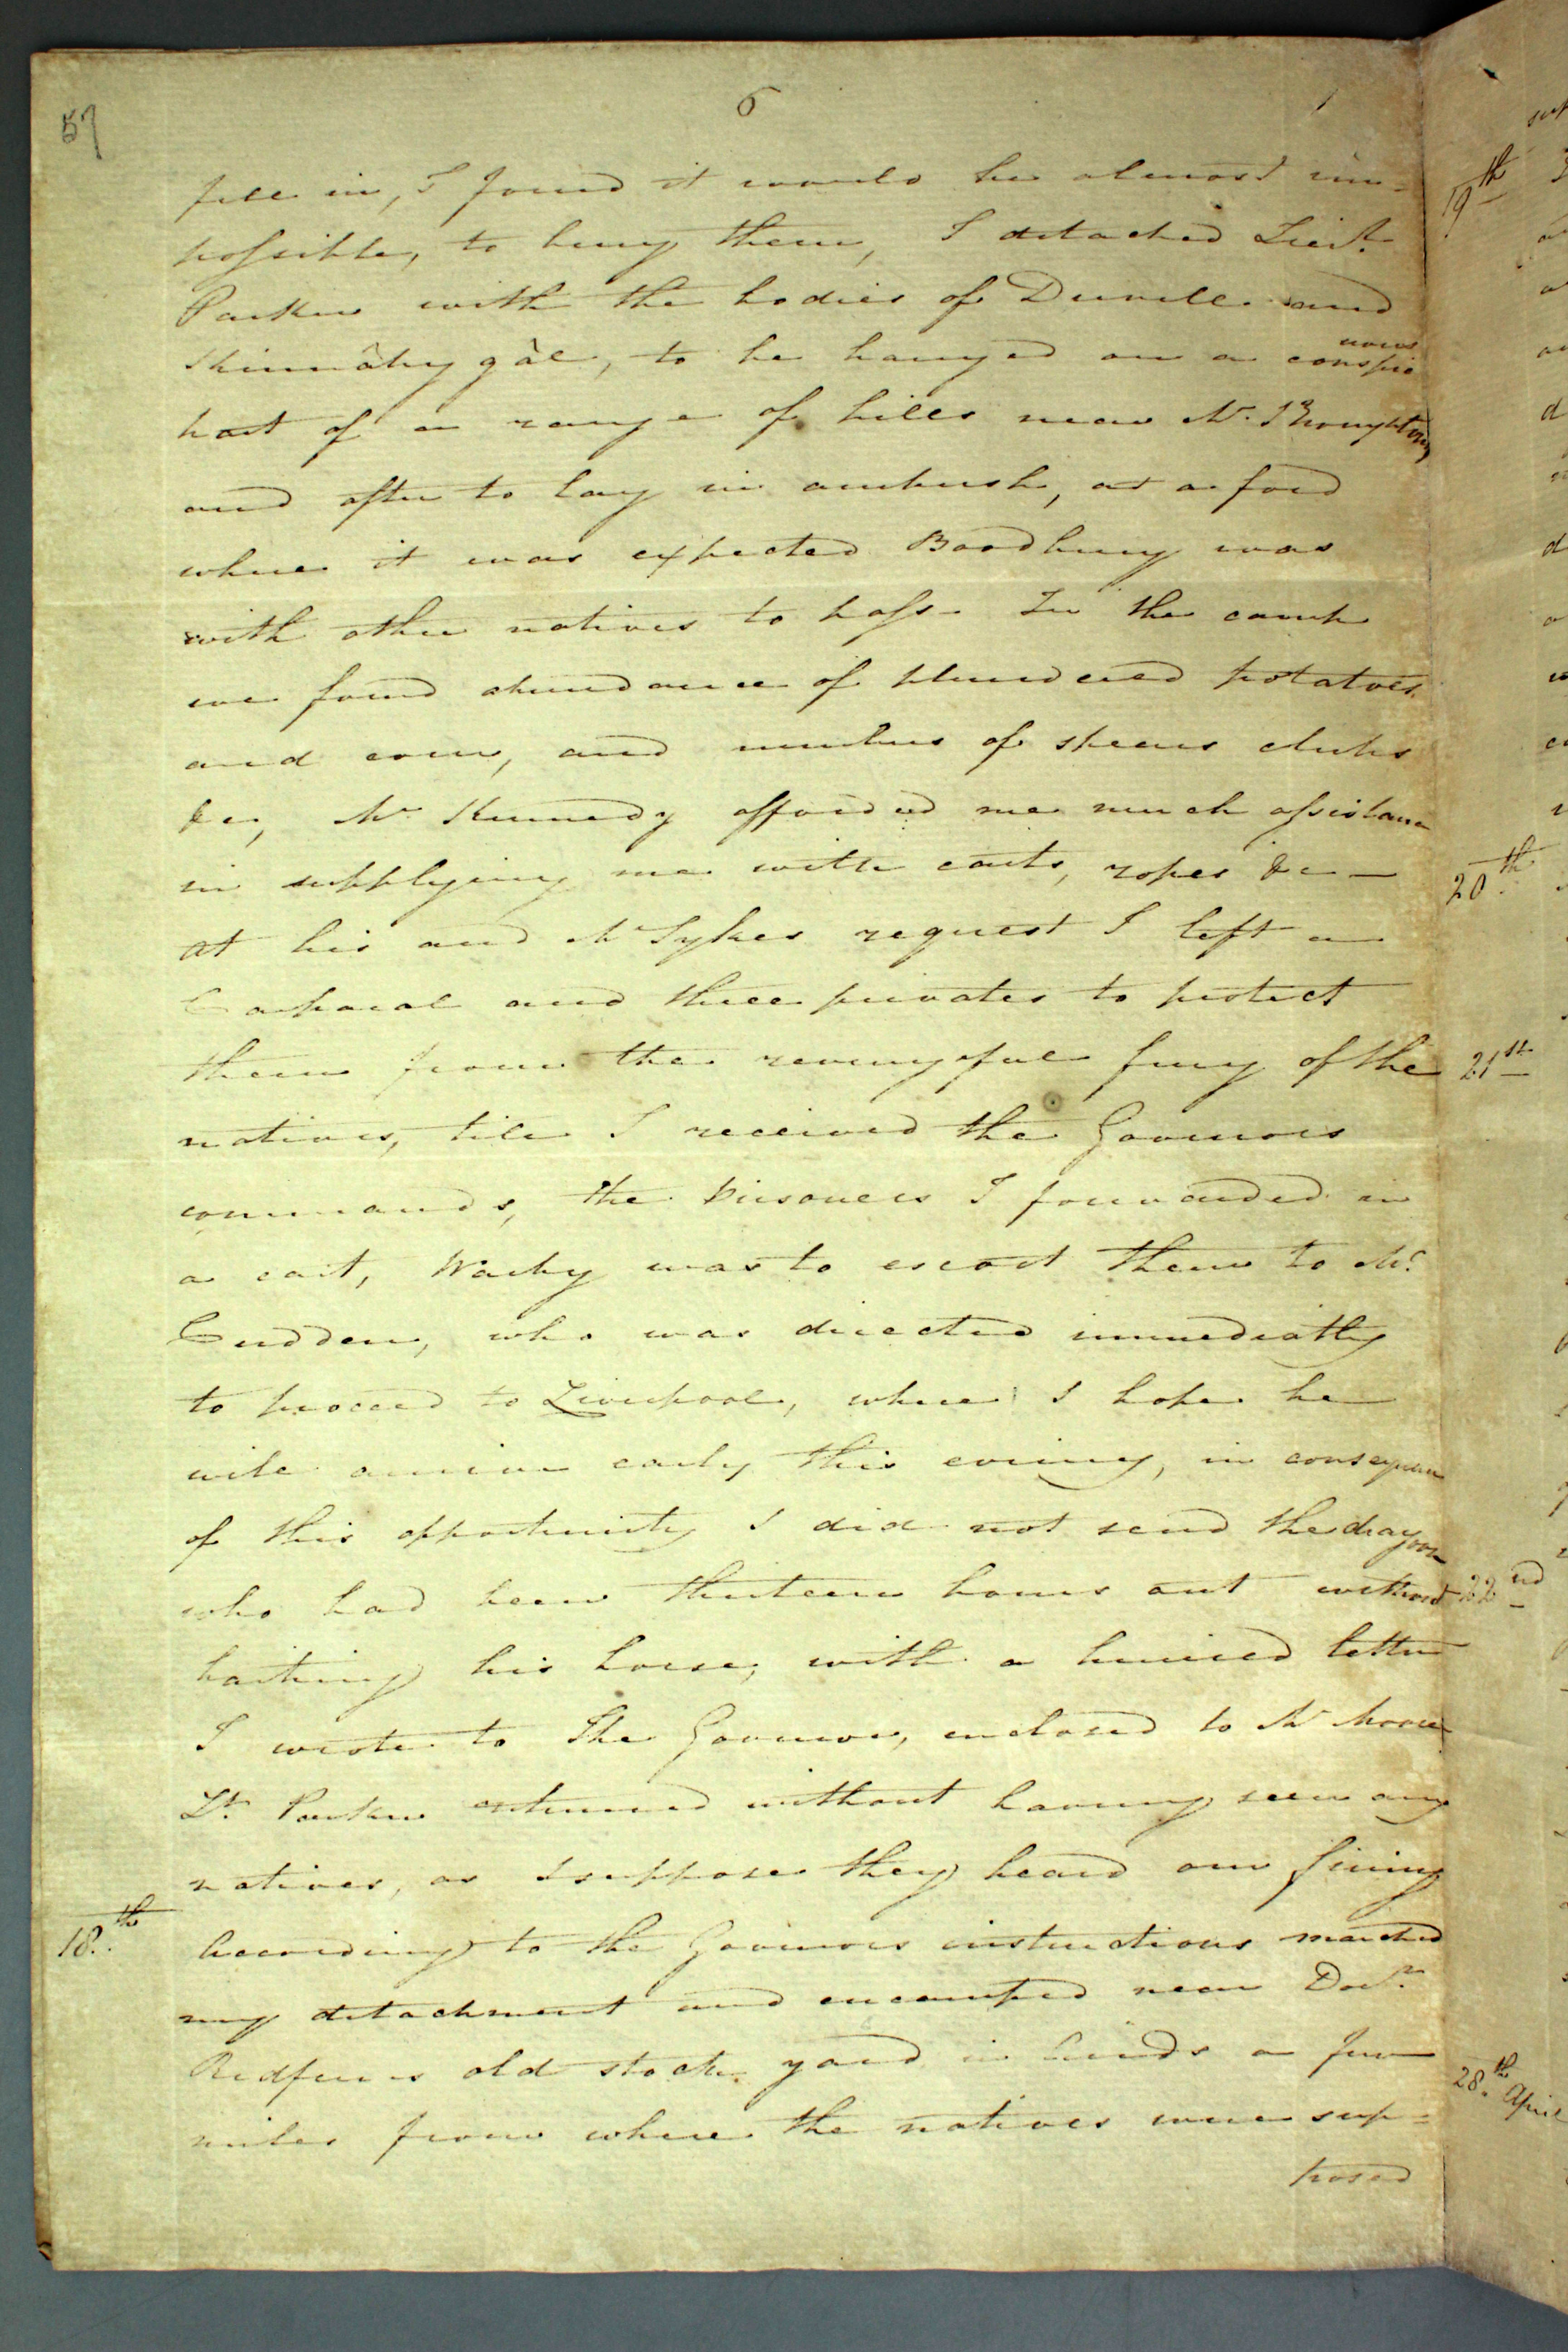 57
6
fell in, I found it would be almost im-
possible, to bury them, I detached Lieut.
Parker with the bodies of Durelle and
Kinnâhygâl, to be hanged on a conspic
uous
part of a range of hills near Mr. Broughtons
and after to lay in ambush, at a ford
where it was expected Boodbury was
with other natives to pass. In the camp
we found abundance of plundered potatoes
and corn, and numbers of spears clubs
&c, Mr. Kennedy afforded me much assistance
in supplying me with carts, ropes &c -
at his and Mr Sykes request I left a
Corporal and three privates to protect
them from the revengeful fury of the
natives, till I received the Governors
commands, the Prisoners I forwarded in
a cart, Warby was to escort them to Mr.
Cudden, who was directed immediatly
to proceed to Liverpool, where I hope he
will arrive early this evening, in consequence
of this opportunity I did not send the dragoon
who had been thirteen hours out without
baiting his horse, with a hurried letter
I wrote to The Governor, enclosed to Mr Moore
Lt. Parker returned without having seen any
natives, as I suppose they heard our firing
18.th According to the Governors instructions marched
my detachment and encamped near Doctr.
Redferns old stock yard in Airds a few
miles from where the natives were sup-
posed
19th
20th
21st
22nd
28.th April